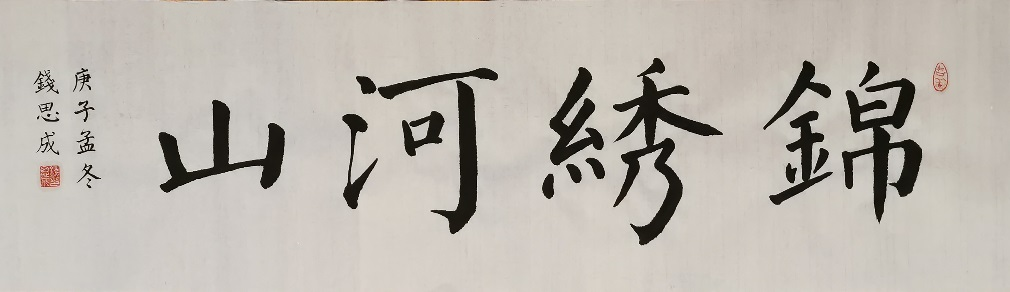 錦綉河山
庚子孟冬
錢思成